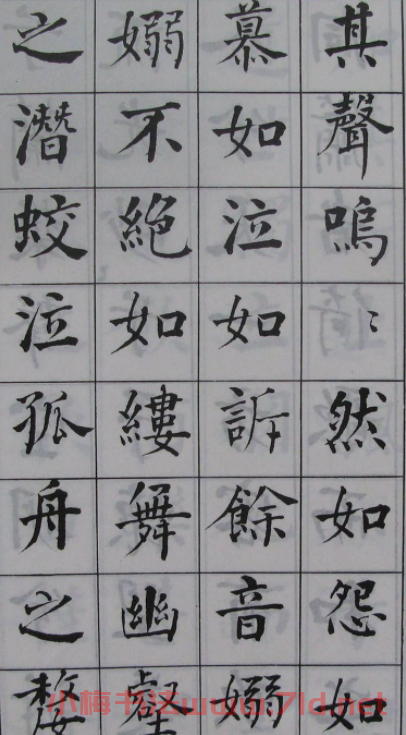 其聲嗚〻然如怨如
慕如泣如訴餘音嫋
嫋不絶如縷舞幽壑
之潛蛟泣孤舟之嫠
小梅书法www.7ld.net